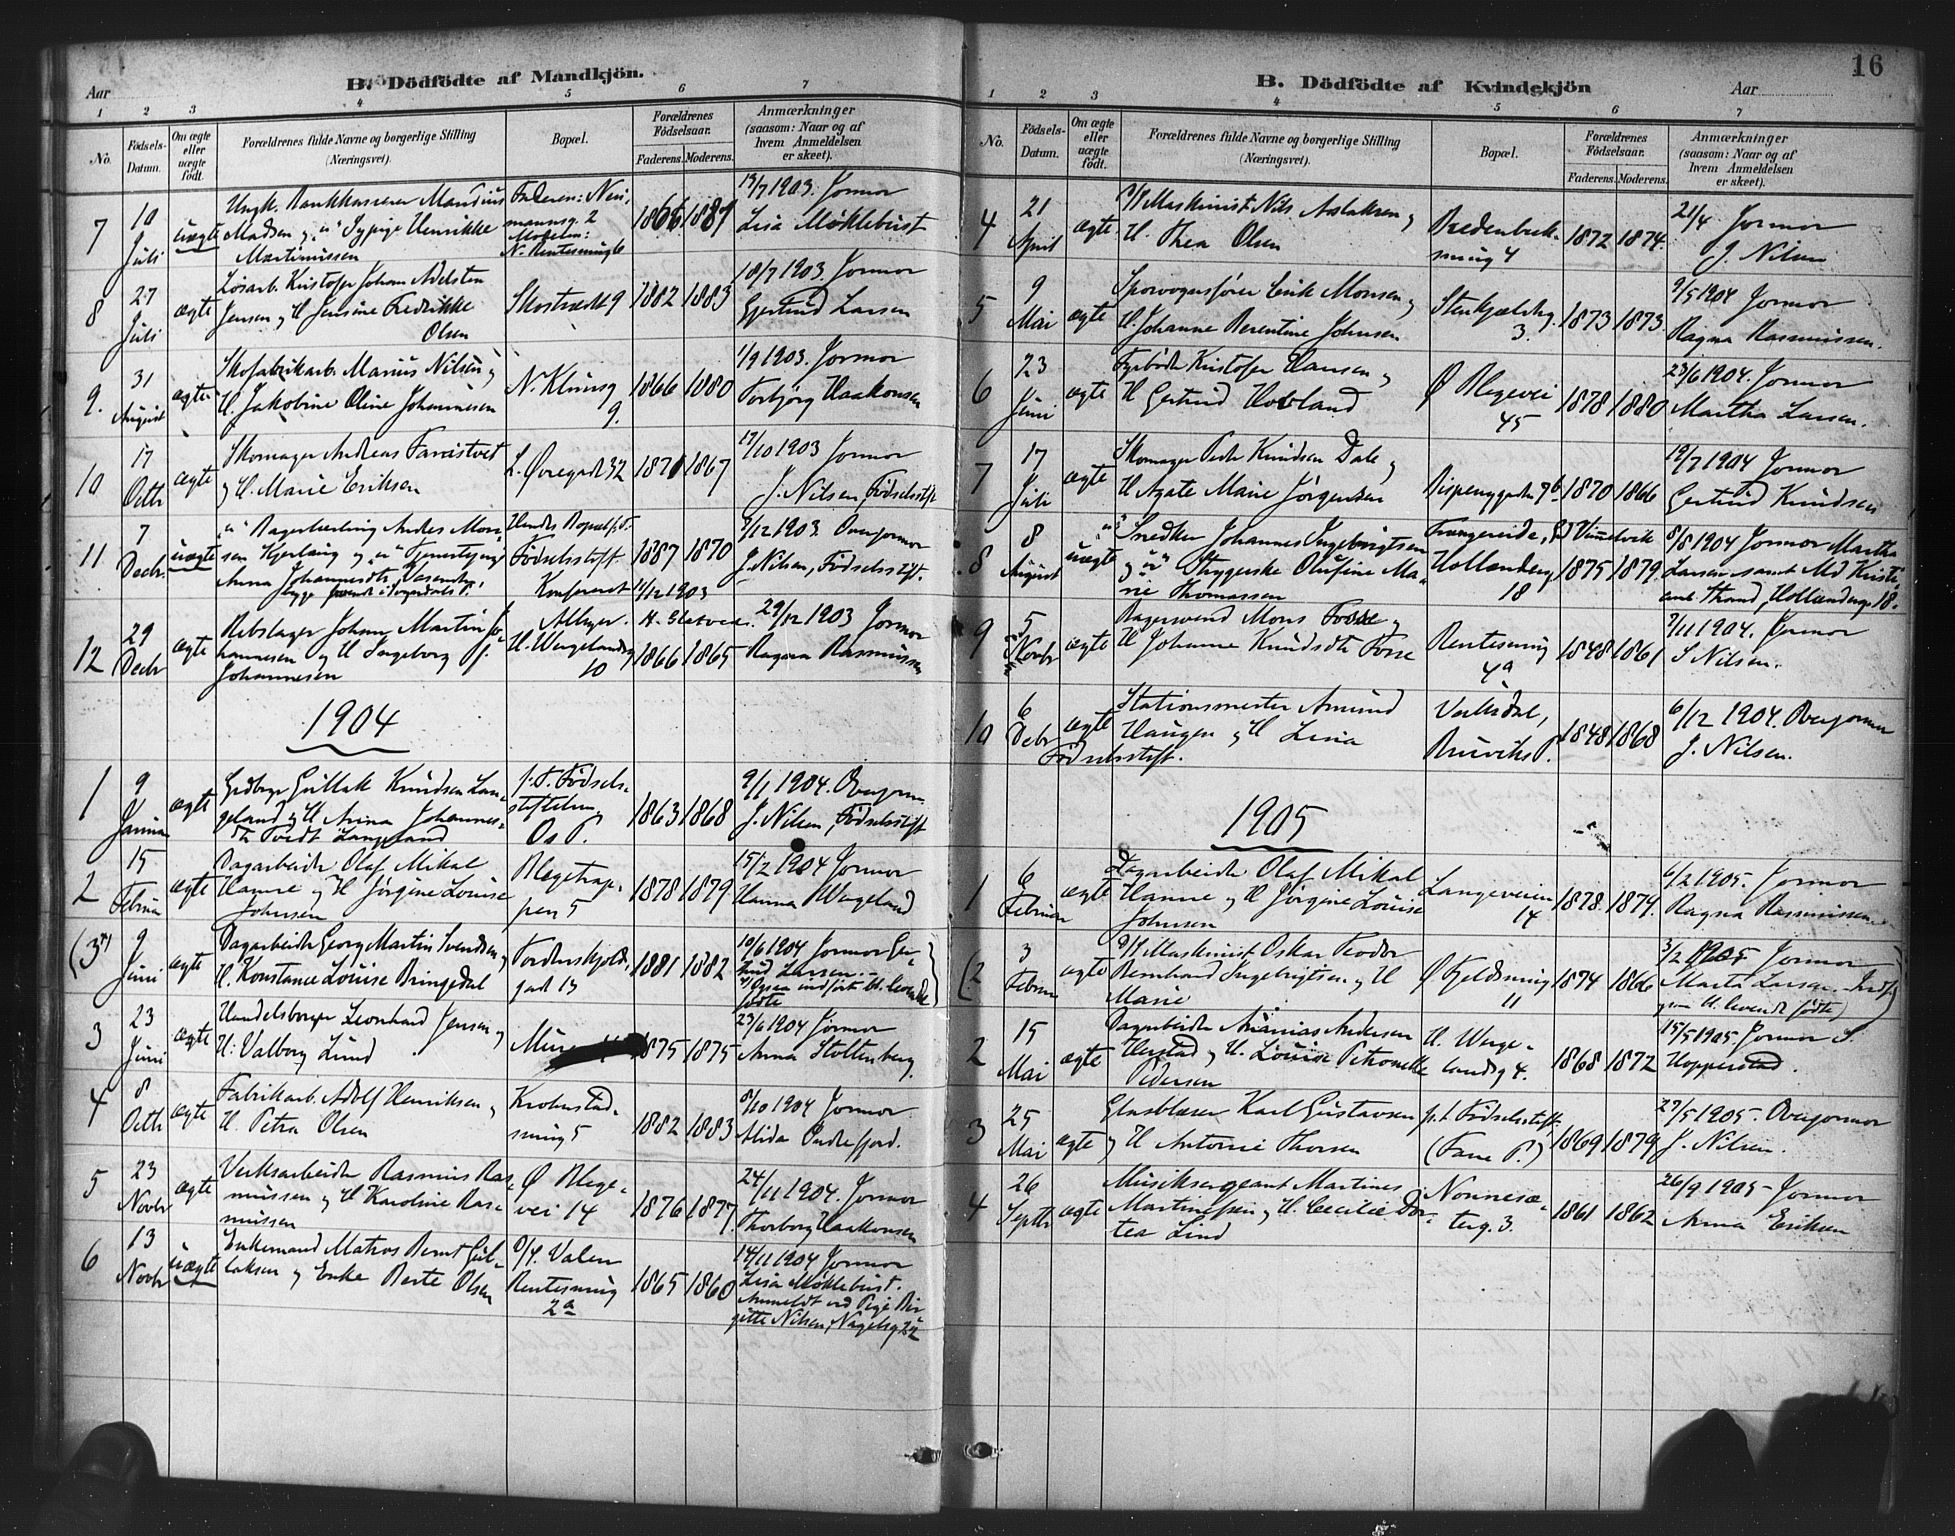 B. Dödfödte af Mandkjön.
Aar
1 2 3 4 5 6 7
No.
Födsels-Datum.
Om ægte eller uægte født.
Forældrenes fulde Navne og borgerlige Stilling (Næringsvei).
Bopæl.
Forældrenes Födselsaar.
Faderens. Moderens.
Anmærkninger (saasom: Naar og af hvem Anmeldelsen er skeet).
7
10 Juli
uægte
Ungk. Bankkasserer Mandius
Madsen og Sypige Henrikke
Martinussen
Faderen: Neu-
mannsg. 2
Moderen:
N. Rentesmug 6
1866 1881
13/7 1903. Jormor
Lisa Møklebust
8
27 Juli
ægte
Løsarb. Kristofer Johan Adelsten
Jensen og H Jensine Fredrikke
Olsen
Skostrædet 9
1882 1883
18/7 1903. Jormor
Gjertrud Larsen
9.
31 August
ægte
Skofabrikarb. Marius Nilsen og
H. Jakobine Oline Johannesen
N. Klausg
9.
1866 1880
1/9 1903. Jormor
Torbjørg Haakonsen
10
17 Octbr
ægte
Skomager Andreas Tarristvet
og H. Marie Eriksen
L. Øvregade 32
1871 1867
17/10 1903 Jormor
J. Nilsen, Fødselsstif
11
7 Decbr.
uægte
Bagerlærling Anders Mon-
sen Kjerlaug og Tjenestepige
Anna Johannesdtr.
Hendes Bopæl p.T.
Fødselsstift.
Konfereret 11/12 1903
1887 1870
7/12 1903. Overjormor
J. Nilsen, Fødselsstift.
12
29 Decbr
ægte
Rebslager Johan Martin Jo-
hannesen og H Ingeborg J.
Johannesen
H. Wergelandsg
10
1866 1865
29/12 1903 Jormor
Ragna Rasmussen
1904
1
9 Januar
ægte
Gullak Knudsen Lan-
geland og H Anna Johannes-
dtr Tvedt Langeland
p.T. Fødsels-
stiftelsen,
Os P.
1863 1868
9/1 1904. Overjorm.
J. Nilsen, Fødselsstift
2
15 Februar
ægte
Dagarbeider Olaf Mikal
Hamre og H Jørgine Louise
Johnsen
Blegetrap-
pen 5
1878 1879
15/2 1904 Jormor
Hanna Wergeland
(3
9 Juni
ægte
Dagarbeider Georg Martin Svendsen og
H. Konstance Louise Bringedal
Tordenskjolds-
gade 13
1881 1882
10/6 1904 Jormor Ger-
trud Larsen.
Ogsaa indført bl. levende
fødte
3
23 Juni
ægte
Handelsborger Leonhard Jensen og
H: Valborg Lund
1875 1875
23/6 1904 Jormor
Anna Stoltenberg
4
8 Octbr
ægte
Fabrikarb. Adolf Henriksen og
H. Petra Olsen
Krohnstad-
smug 5
1882 1883
8/10 1904 Jormor
Alida Indrefjord.
5
23 Novbr
ægte
Verksarbeider Rasmus Ras-
mussen og H Karoline Ras-
mussen
Ø Blege-
vei 14
1876 1877.
24/11 1904. Jormor
Thorborg Haakonsen
6
13 Novbr
uægte
Enkemand Matros Bernt Gul-
laksen og Enke Berte Olsen
O/f. Valen
Rentesmug
2a
1865 1860
14/11 1904 Jormor
Lisa Møklebust.
Anmeldt ved Pige Bir-
gitte Nilsen, Nagelsg 22
B. Dödfödte af Kvindekjön
16
Aar
1 2 3 4 5 6 7
No.
Födsels-Datum.
Om ægte eller uægte födt.
Forældrenes fulde Navne og borgerlige Stilling (Næringsvei).
Bopæl.
Forældrenes Födselsaar.
Faderens. Moderens.
Anmærkninger (saasom: Naar og af hvem Anmeldelsen er skeet).
4
21 April
ægte
Maskinist Nils Aslaksen og
H. Thea Olsen
Bredenbeck-
smug 4
1872 1874.
21/4 Jormor
J. Nilsen
5
9 Mai
ægte
Sporvognsfører Erik Monsen og
H. Johanne Berentine Johnsen
Stenkjælderg.
3.
1873 1873
9/5 1904 Jormor
Ragna Rasmussen.
6
23 Juni
ægte
Fyrbøder Kristofer Hansen og
H Gertrud Hovland
Ø Blegevei
45
1878 1880
23/6 1904. Jormor
Martha Larsen.
7
17 Juli
ægte
Skomager Peder Knudsen Dale og
H Agate Marie Jørgensen
Bispenggaden 7b
1870 1866
19/7 1904 Jormor
Gertrud Knudsen
8
8 August
uægte
Snedker Johannes Ingebrigtsen
og Strygerske Olufine Ma-
rie Thomassen
Hollenderg
18
1875 1879.
8/8 1904 Jormor Martha
Larsen samt Md Kristi-
ane Strand, Hollenderg 18.
9
5 Novbr
ægte
Bagersvend Mons Fosse og
H Johanne Knudsdtr Fosse
Rentesmug
4a
1848 1861
7/11 1904. Jormor
S Nilsen.
10
6 Debr
ægte
Stationsmester Amund
Haugen og H Lina
Fødselsstift.
Vaksdal,
Bruviks P.
1848 1868
6/12 1904. Overjormor
J. Nilsen.
1905
1
6 Februar
ægte
Dagarbeider Olaf Mikal
Hamre og H Jørgine Louise
Johnsen
Langeveien
14
1878. 1879.
6/2 1905. Jormor
Ragna Rasmussen.
(2
3 Februar
ægte
Maskinist Oskar Teodor
Bernhard Ingebrigtsen og H
Marie
Ø Fjeldsmug
11
1874 1866
3/2 1905 Jormor
Marta Larsen
levende fødte)
2
15 Mai
ægte
Dagarbeider Ananias Andersen
Herstad og H. Louise Petronelle
Pedersen
H. Werge-
landsg 4.
1868 1872
15/5 1905. Jormor S.
Hopperstad.
3
25 Mai
ægte
Glasblæser Karl Gustavsen
og H Antonie Thorsen
p.t. Fødselsstift.
(Fane P.)
1869 1879
27/5 1905. Overjormor
J. Nilsen.
4
26 Septbr
ægte
Musiksergeant Martines
Martinussen og H. Cecilie Dor-
tea Lind
Nonnesæ-
terg. 3.
1861 1862
26/9 1905 Jormor
Anna Eriksen